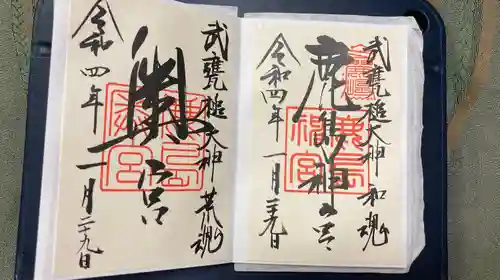 武甕槌大神 和魂
鹿島神宮
令和四年一月二十九日
鹿島神宮
武甕槌大神 荒魂
奥宮
令和四年一月二十九日
鹿島奥宮